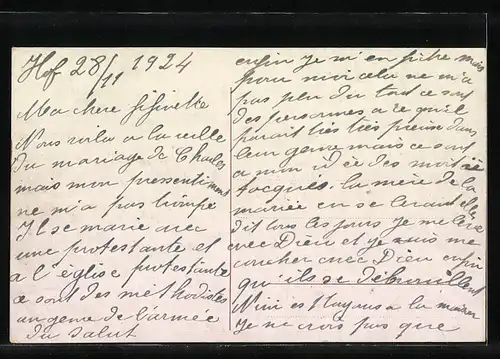 Hof 28/11 1924
Ma chere Fifinette
Nous voila a la veille
du mariage de Charles
mais mon pressentiment
ne m'a pas trompé
Il se marie avec
une protestante et
a l'église protestante
ce sont des méthodistes
un genre de l'armée
du salut
enfin je m'en fiche mais
pour moi cela ne m'a
pas plu du tout ce sont
des personnes a ce qu'il
parait très très pieuse dans
leur genre mais ce sont
a mon idée des
toqués. la mère de la
mariée en se levant elle
dit tous les jours je me leve
avec Dieu et je vais me
coucher avec Dieu enfin
qu'ils se débrouillent
Nini est toujours a la
je ne crois pas que